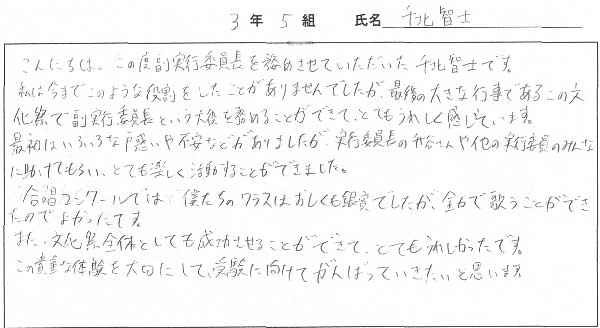 3年5組 氏名 千北智士
こんにちは。この度副実行委員長を務めさせていただいた千北智士です。
私は今までこのような役割をしたことがありませんでしたが、最後の大きな行事であるこの文
化祭で副実行委員長という大役を務めることができて、とてもうれしく感じています。
最初はいろいろな戸惑いや不安などがありましたが、実行委員長の さんや他の実行委員のみんな
に助けてもらい、とても楽しく活動することができました。
合唱コンクールでは、僕たちのクラスはおしくも銀賞でしたが、全力で歌うことができ
たのでよかったです。
また、文化祭全体としても成功させることができて、とてもうれしかったです。
この貴重な体験を大切にして、受験に向けてがんばっていきたいと思います。